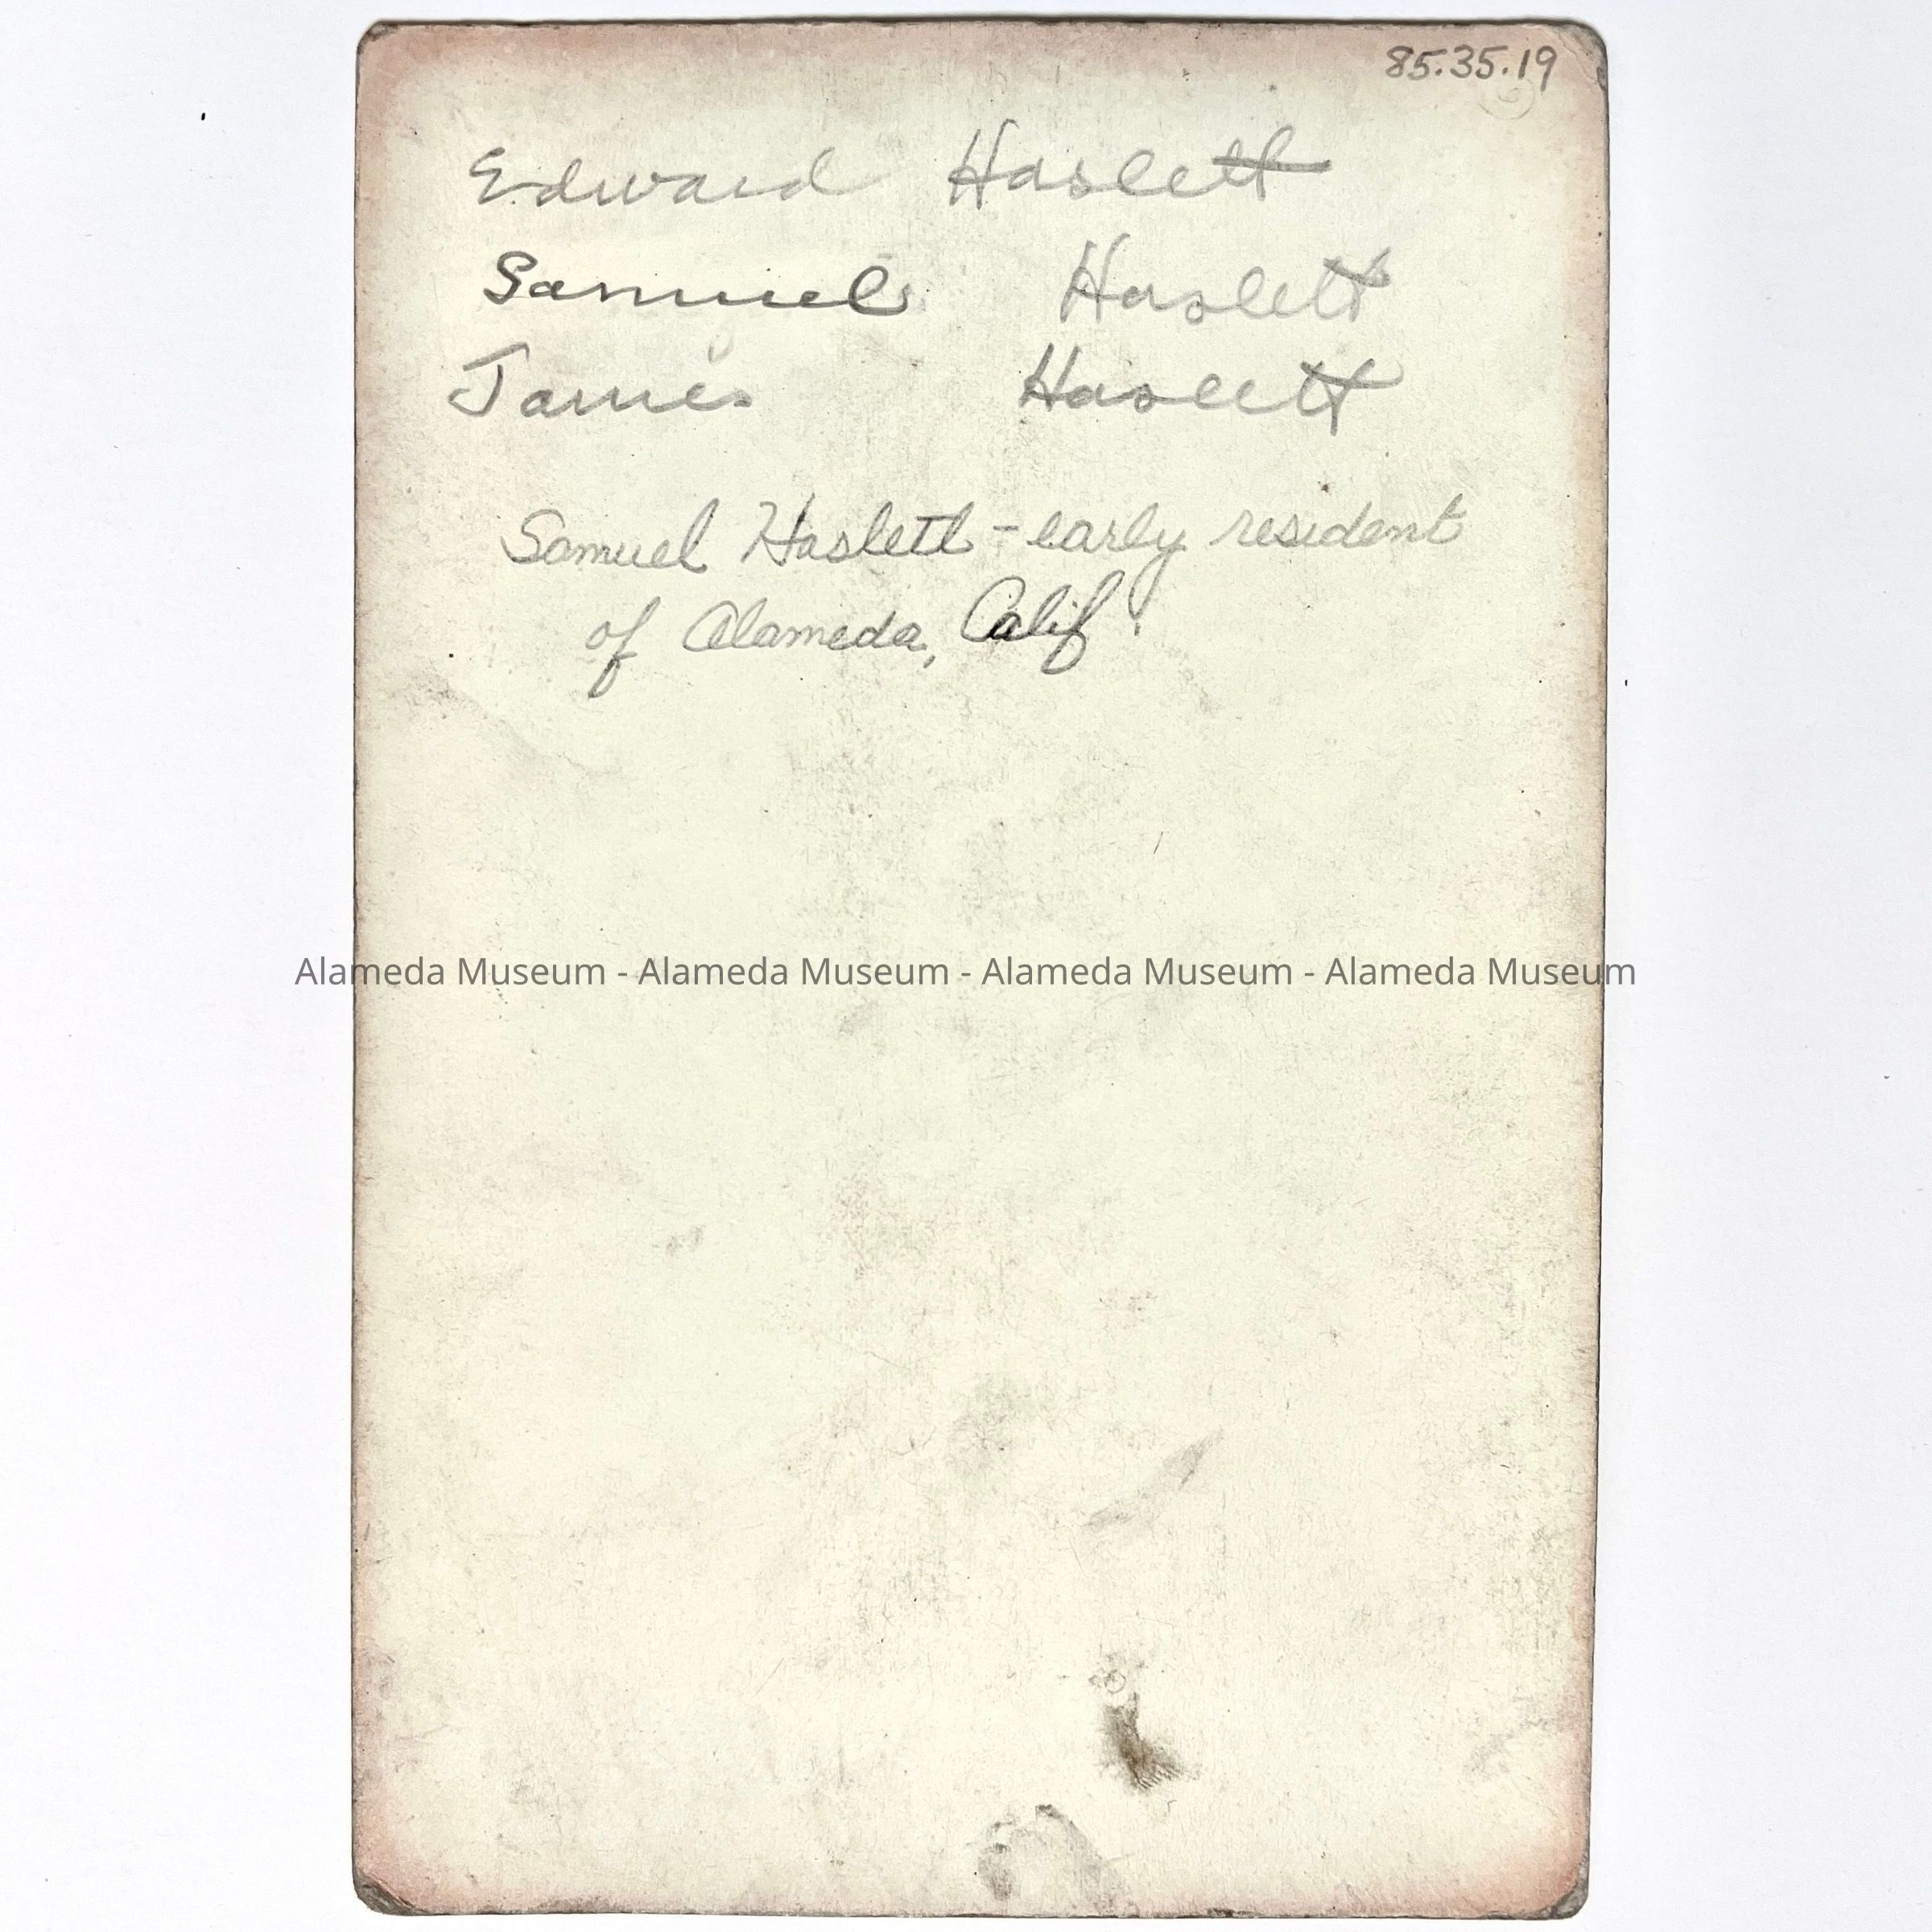 85.35.19
Edward Haslett
Samuel Haslett
James Haslett
Samuel Haslett - early resident
of Alameda, Calif.
Alameda Museum - Alameda Museum - Alameda Museum - Alameda Museum